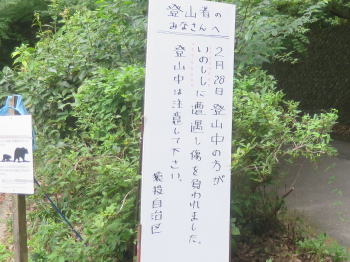 登山者の
みなさんへ
2月28日 登山中の方が
いのししに遭遇し傷を負われました。
登山中は注意して下さい。
自治区